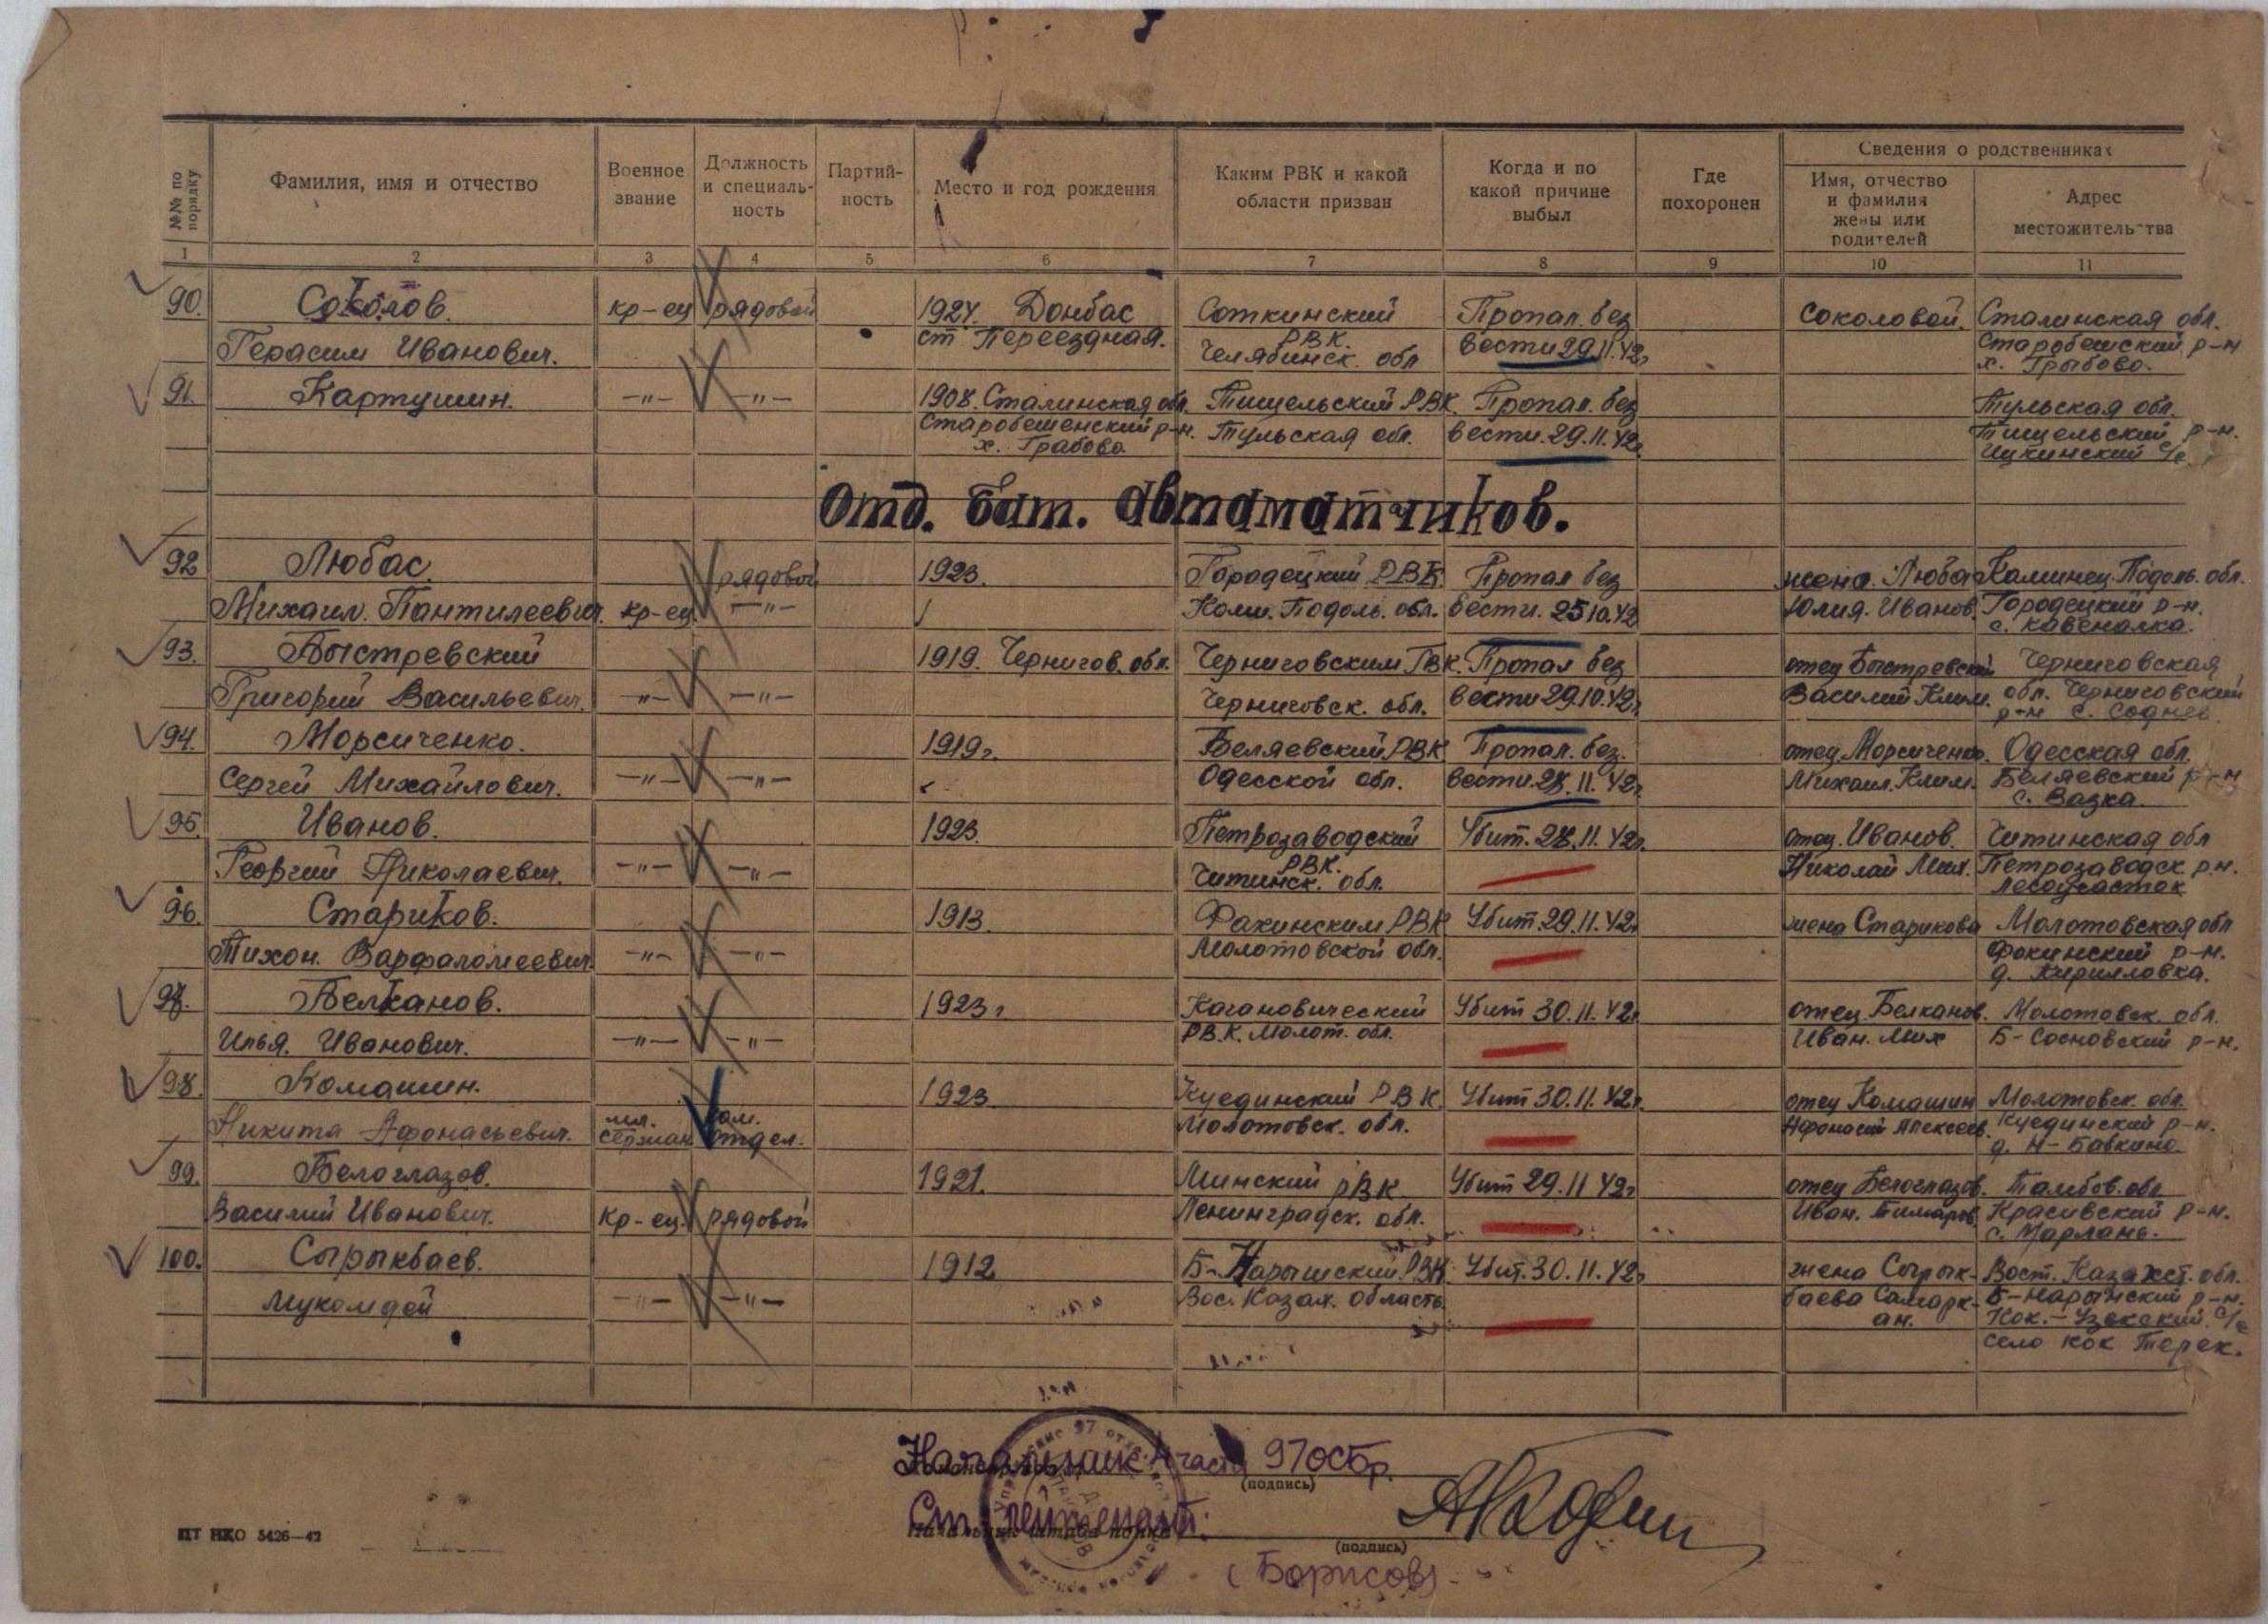 №№ по порядку
Фамилия, имя и отчество
Военное звание
Должность и специаль-ность
Партий-ность
Место и год рождения
Каким РВК и какой области призван
Когда и по какой причине выбыл
Где похоронен
Сведения о родственниках
Имя, отчество и фамилия жены или родителей
Адрес местожительства
1 2 3 4 5 6 7 8 9 10 11
90. Соколов. кр-ец рядовой 1924. Донбас Соткинский Пропал. без Соколовой. Сталинская обл.
Герасим Иванович. ст Переездная. РВК. Челябинск. обл вести 29.11.42г Старобешский р-н
х. Грабово.
91. Картушин. -"- -"- 1908. Сталинская обл. Тищельский РВК. Пропал. без Тульская обл.
Старобешенский р-н. Тульская обл. вести. 29.11.42г Тищельский р-н.
х. Грабово Щукинский с/с
Отд. бат. автоматчиков.
92 Любас. рядовой 1923. Городецкий РВК. Пропал без жена. Люба Каминец. Подоль. обл.
Михаил. Пантилеевич. кр-ец -"- Коми. Подоль. обл. вести. 25 10.42 Юлия. Иванов. Городецкий р-н.
93. Быстревский 1919. Чернигов. обл. Черниговским РВК. Пропал без отец Быстревский Черниговская
Григорий Васильевич. -"- -"- Черниговск. обл. вести 29.10.42г Василий Клим. обл. Черниговский
р-н с. Соднев.
94. Морсиченко. 1919г. Беляевский РВК Пропал. без. отец Морсиченко. Одесская обл.
Сергей Михайлович. -"- -"- Одесской обл. вести. 28.11.42г Михаил. Клим. Беляевский р-н
с. Вазка.
95. Иванов. 1923. Петрозаводский Убит. 28.11.42г. отец. Иванов. Читинская обл
Георгий Николаевич. -"- -"- РВК. Читинск. обл. Николай Мих. Петрозаводск р.н.
лесоучасток
96. Стариков. 1913. Факинским РВК Убит. 29.11.42г жена Старикова Молотовская обл
Тихон. Варфаломеевич. -"- -"- Молотовской обл. Фокинский р-н.
д. Кирилловка.
97. Белканов. 1923г Кагановический Убит 30.11.42г отец Белканов. Молотовск. обл.
Илья. Иванович. -"- -"- РВ.К. Молот. обл. Иван. Мих Б-Сосновский р-н.
98. Комашин. 1923. Куединский РВК Убит 30.11.42г. отец Комашин Молотовск. обл.
Никита Афонасьевич. мл. сержан. ком. отдел. Молотовск. обл. Афонасий Алексеев. Куединский р-н.
99. Белоглазов. 1921. Минский РВК Убит 29.11 42г отец Белоглазов. Тамбов. обл
Василий Иванович. кр-ец. рядовой Ленинградск. обл. Иван. Красивский р-н.
с. Марлань.
100. Сырыкбаев. 1912 Б-Нарымский РВК Убит. 30.11.42г жена Сырык- Вост. Казахст. обл.
Мукомдей -"- -"- Вос. Казах. область. баева Самарк- Б-Нарымский р-н.
ан. Кок.-Узекский. с/с
село Кок Терек.
Начальник 4 части 97 ОСБр.
(подпись)
Ст. лейтенант:
(подпись)
(Борисов)
ПТ НКО 5426—42